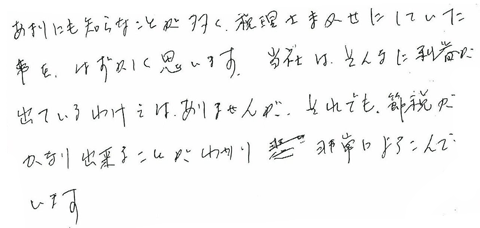 あまりにも知らなことが多く、税理士まかせにしていた
事を、はずかしく思います。当社は、そんなに利益が
出ているわけでは、ありませんが、それでも、節税が
かなり出来ることがわかり 非常によろこんで
います